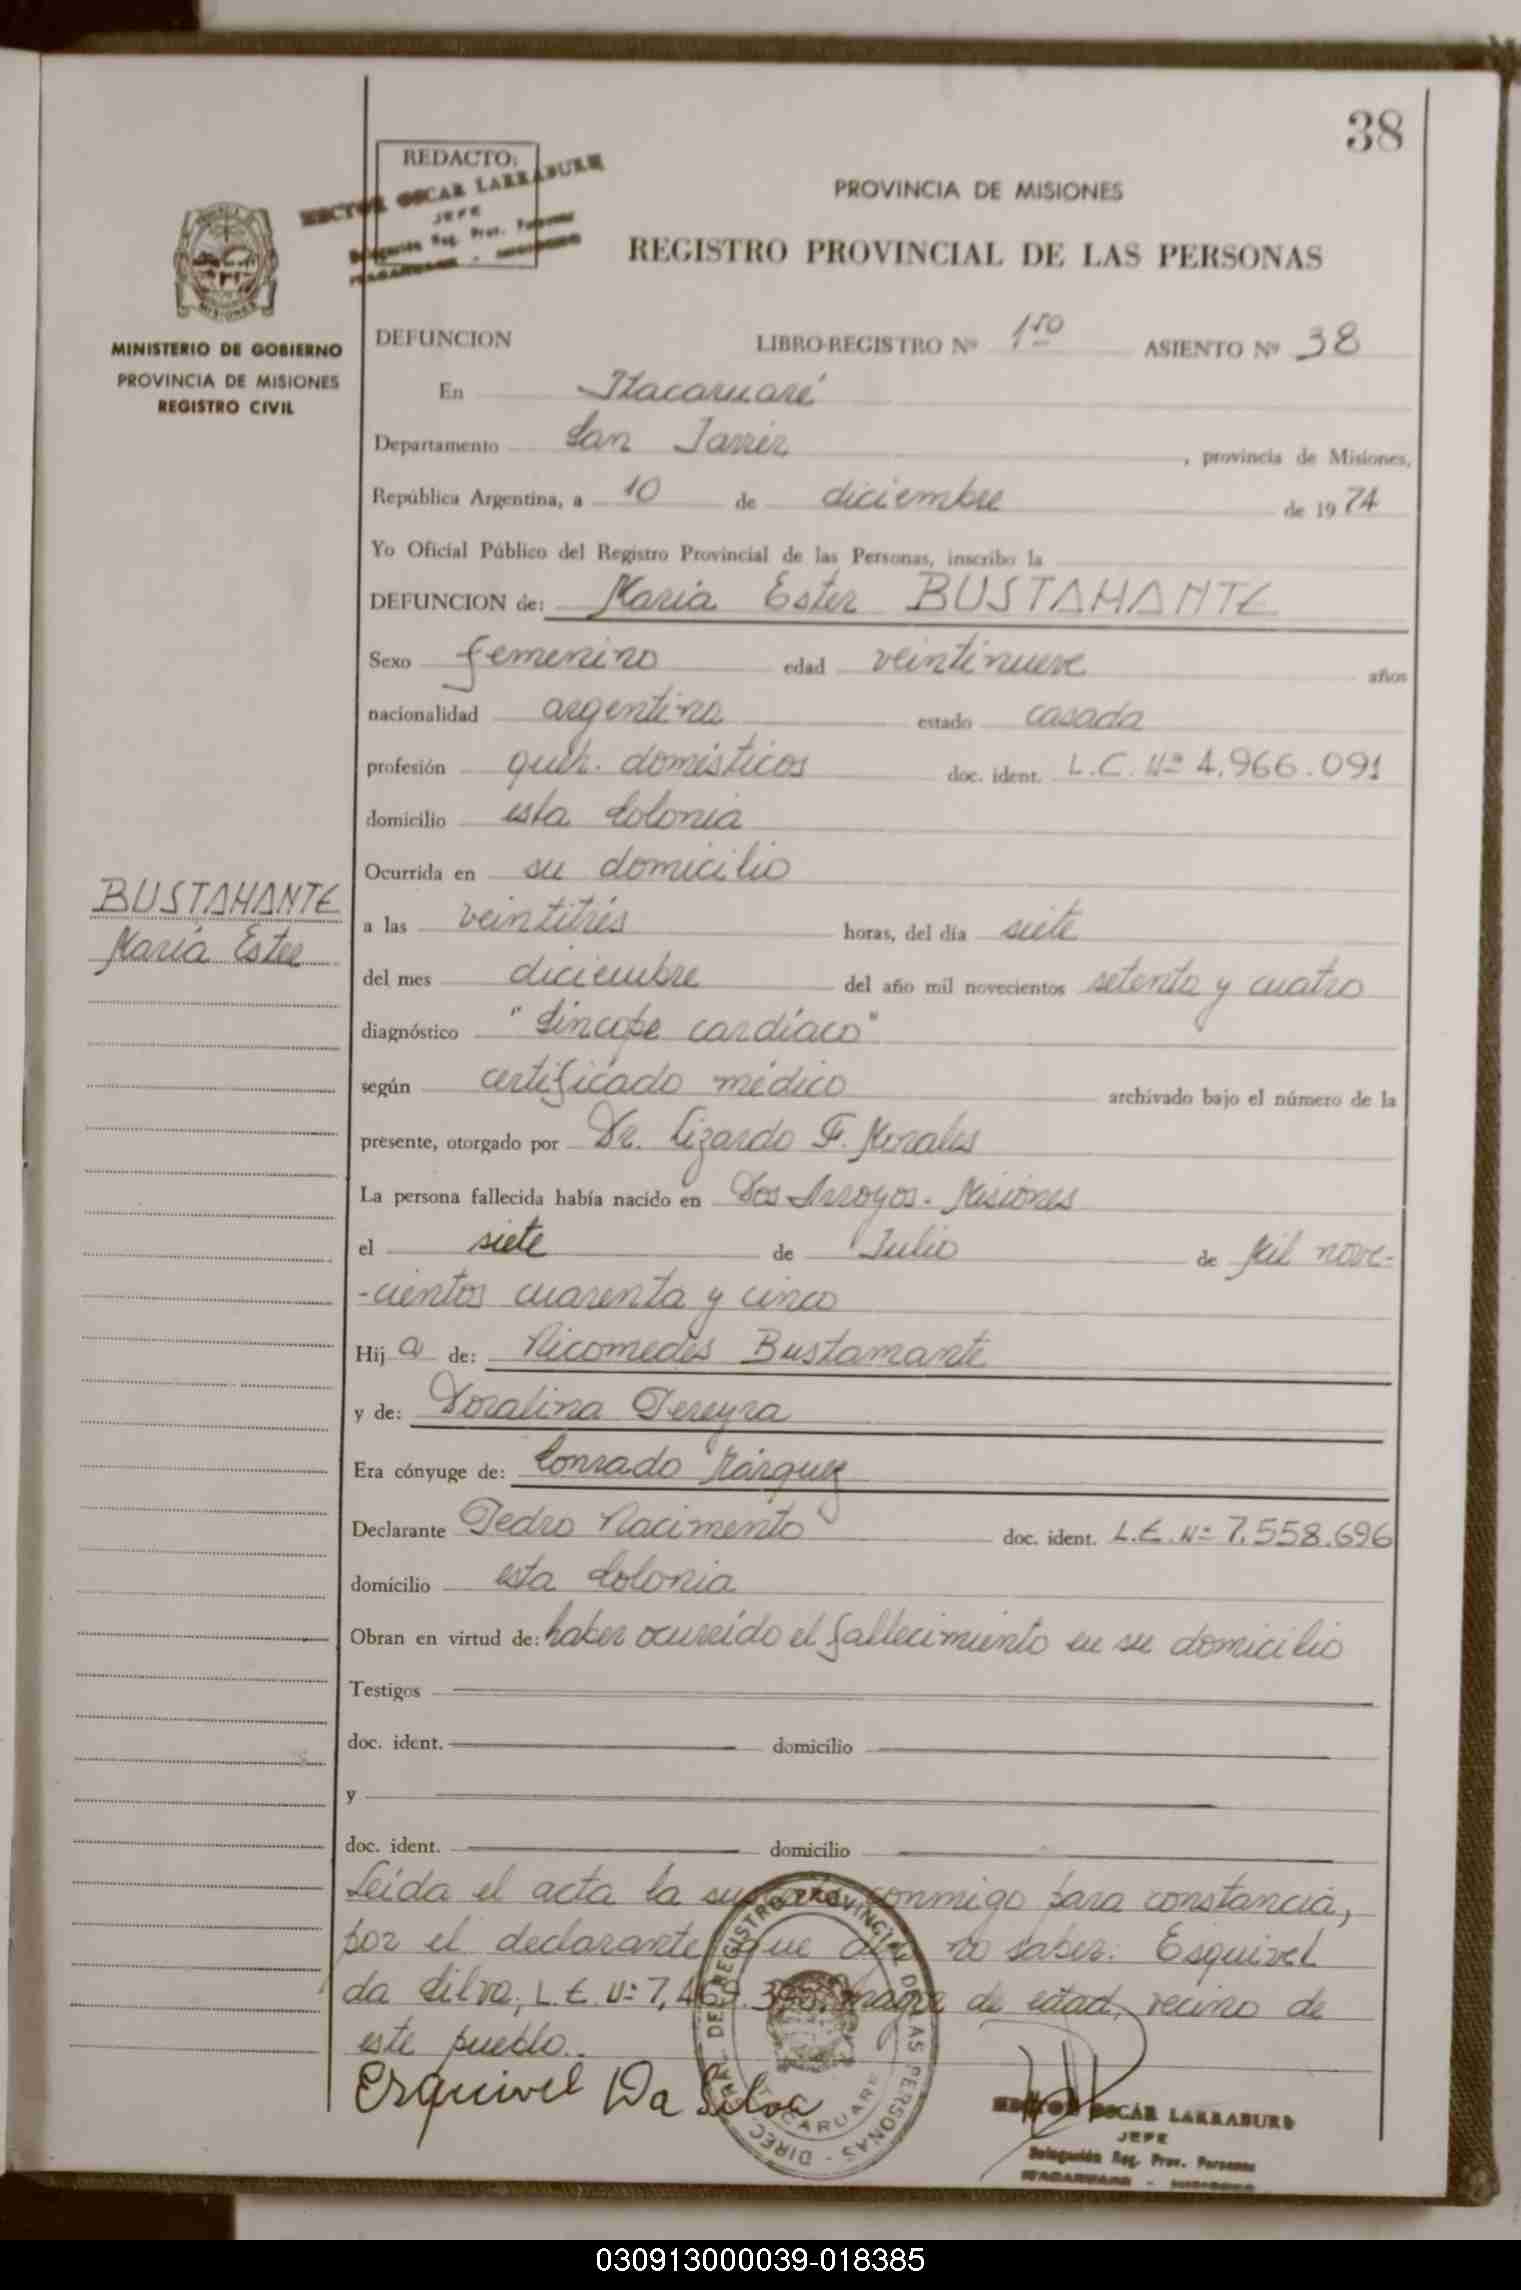 38
REDACTO:
HECTOR OSCAR LARRABURE
JEFE
Delegación Reg. Prov. Personas
ITACARUARE - MISIONES
PROVINCIA DE MISIONES
REGISTRO PROVINCIAL DE LAS PERSONAS
MISIONES
MINISTERIO DE GOBIERNO
PROVINCIA DE MISIONES
REGISTRO CIVIL
DEFUNCION LIBRO-REGISTRO Nº 1ro ASIENTO Nº 38
En Itacaruaré
Departamento San Javier, provincia de Misiones,
República Argentina, a 10 de diciembre de 1974
Yo Oficial Público del Registro Provincial de las Personas, inscribo la
DEFUNCION de: María Ester BUSTAMANTE
Sexo femenino edad veintinueve años
nacionalidad argentina estado casada
profesión queh. domésticos doc. ident. L.C. Nº 4.966.091
domicilio esta Colonia
Ocurrida en su domicilio
BUSTAMANTE
María Ester
a las veintitrés horas, del día siete
del mes diciembre del año mil novecientos setenta y cuatro
diagnóstico "Síncope cardíaco"
según certificado médico archivado bajo el número de la
presente, otorgado por Dr. Lizardo F. Morales
La persona fallecida había nacido en Dos Arroyos - Misiones
el siete de Julio de Mil nove-
-cientos cuarenta y cinco
Hij a de: Nicomedes Bustamante
y de: Doralina Pereyra
Era cónyuge de: Conrado Márquez
Declarante Pedro Nacimento doc. ident. L.E. Nº 7.558.696
domicilio esta Colonia
Obran en virtud de: haber ocurrido el fallecimiento en su domicilio
Testigos
doc. ident. domicilio
y
doc. ident. domicilio
Leída el acta la conmigo para constancia,
por el declarante que dijo no saber: Esquivel
da Silva, L.E. Nº 7, mayor de edad, vecino de
este pueblo.
Esquivel Da Silva
DIREC. GRAL. DEL REGISTRO PROVINCIAL DE LAS PERSONAS
ITACARUARE
HECTOR OSCAR LARRABURE
JEFE
Delegación Reg. Prov. Personas
ITACARUARE - MISIONES
030913000039-018385